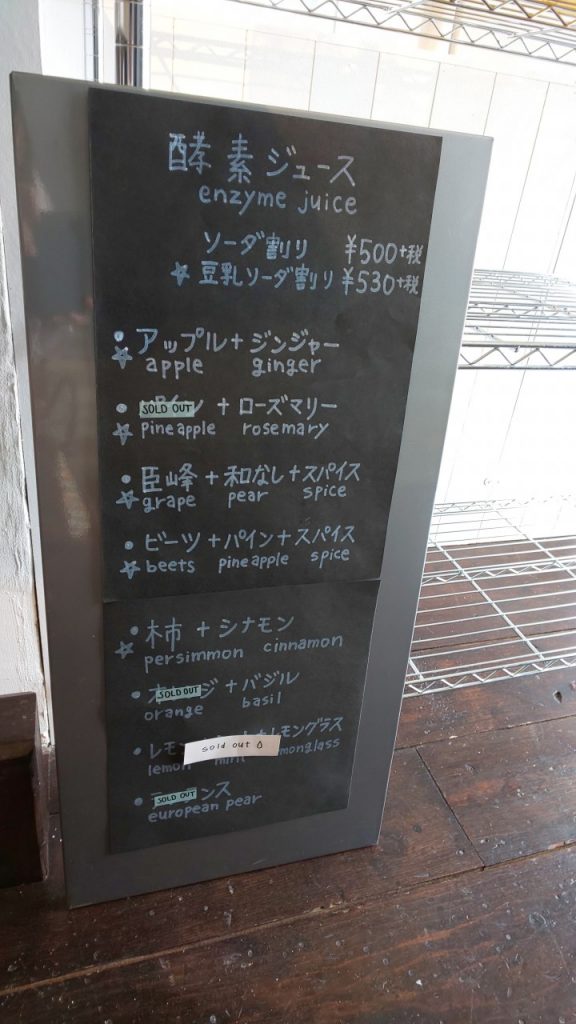 酵素ジュース
enzyme juice
ソーダ割り ¥500+税
☆豆乳ソーダ割り ¥530+税
• アップル+ジンジャー
☆ apple ginger
• SOLD OUT +ローズマリー
☆ pineapple rosemary
• 臣峰+和なし+スパイス
☆ grape pear spice
• ビーツ+パイン+スパイス
☆ beets pineapple spice
• 柿+シナモン
☆ persimmon cinnamon
• オ SOLD OUT ジ+バジル
orange basil
• レモ sold out レモングラス
lemon mint monglass
• SOLD OUT ンス
european pear